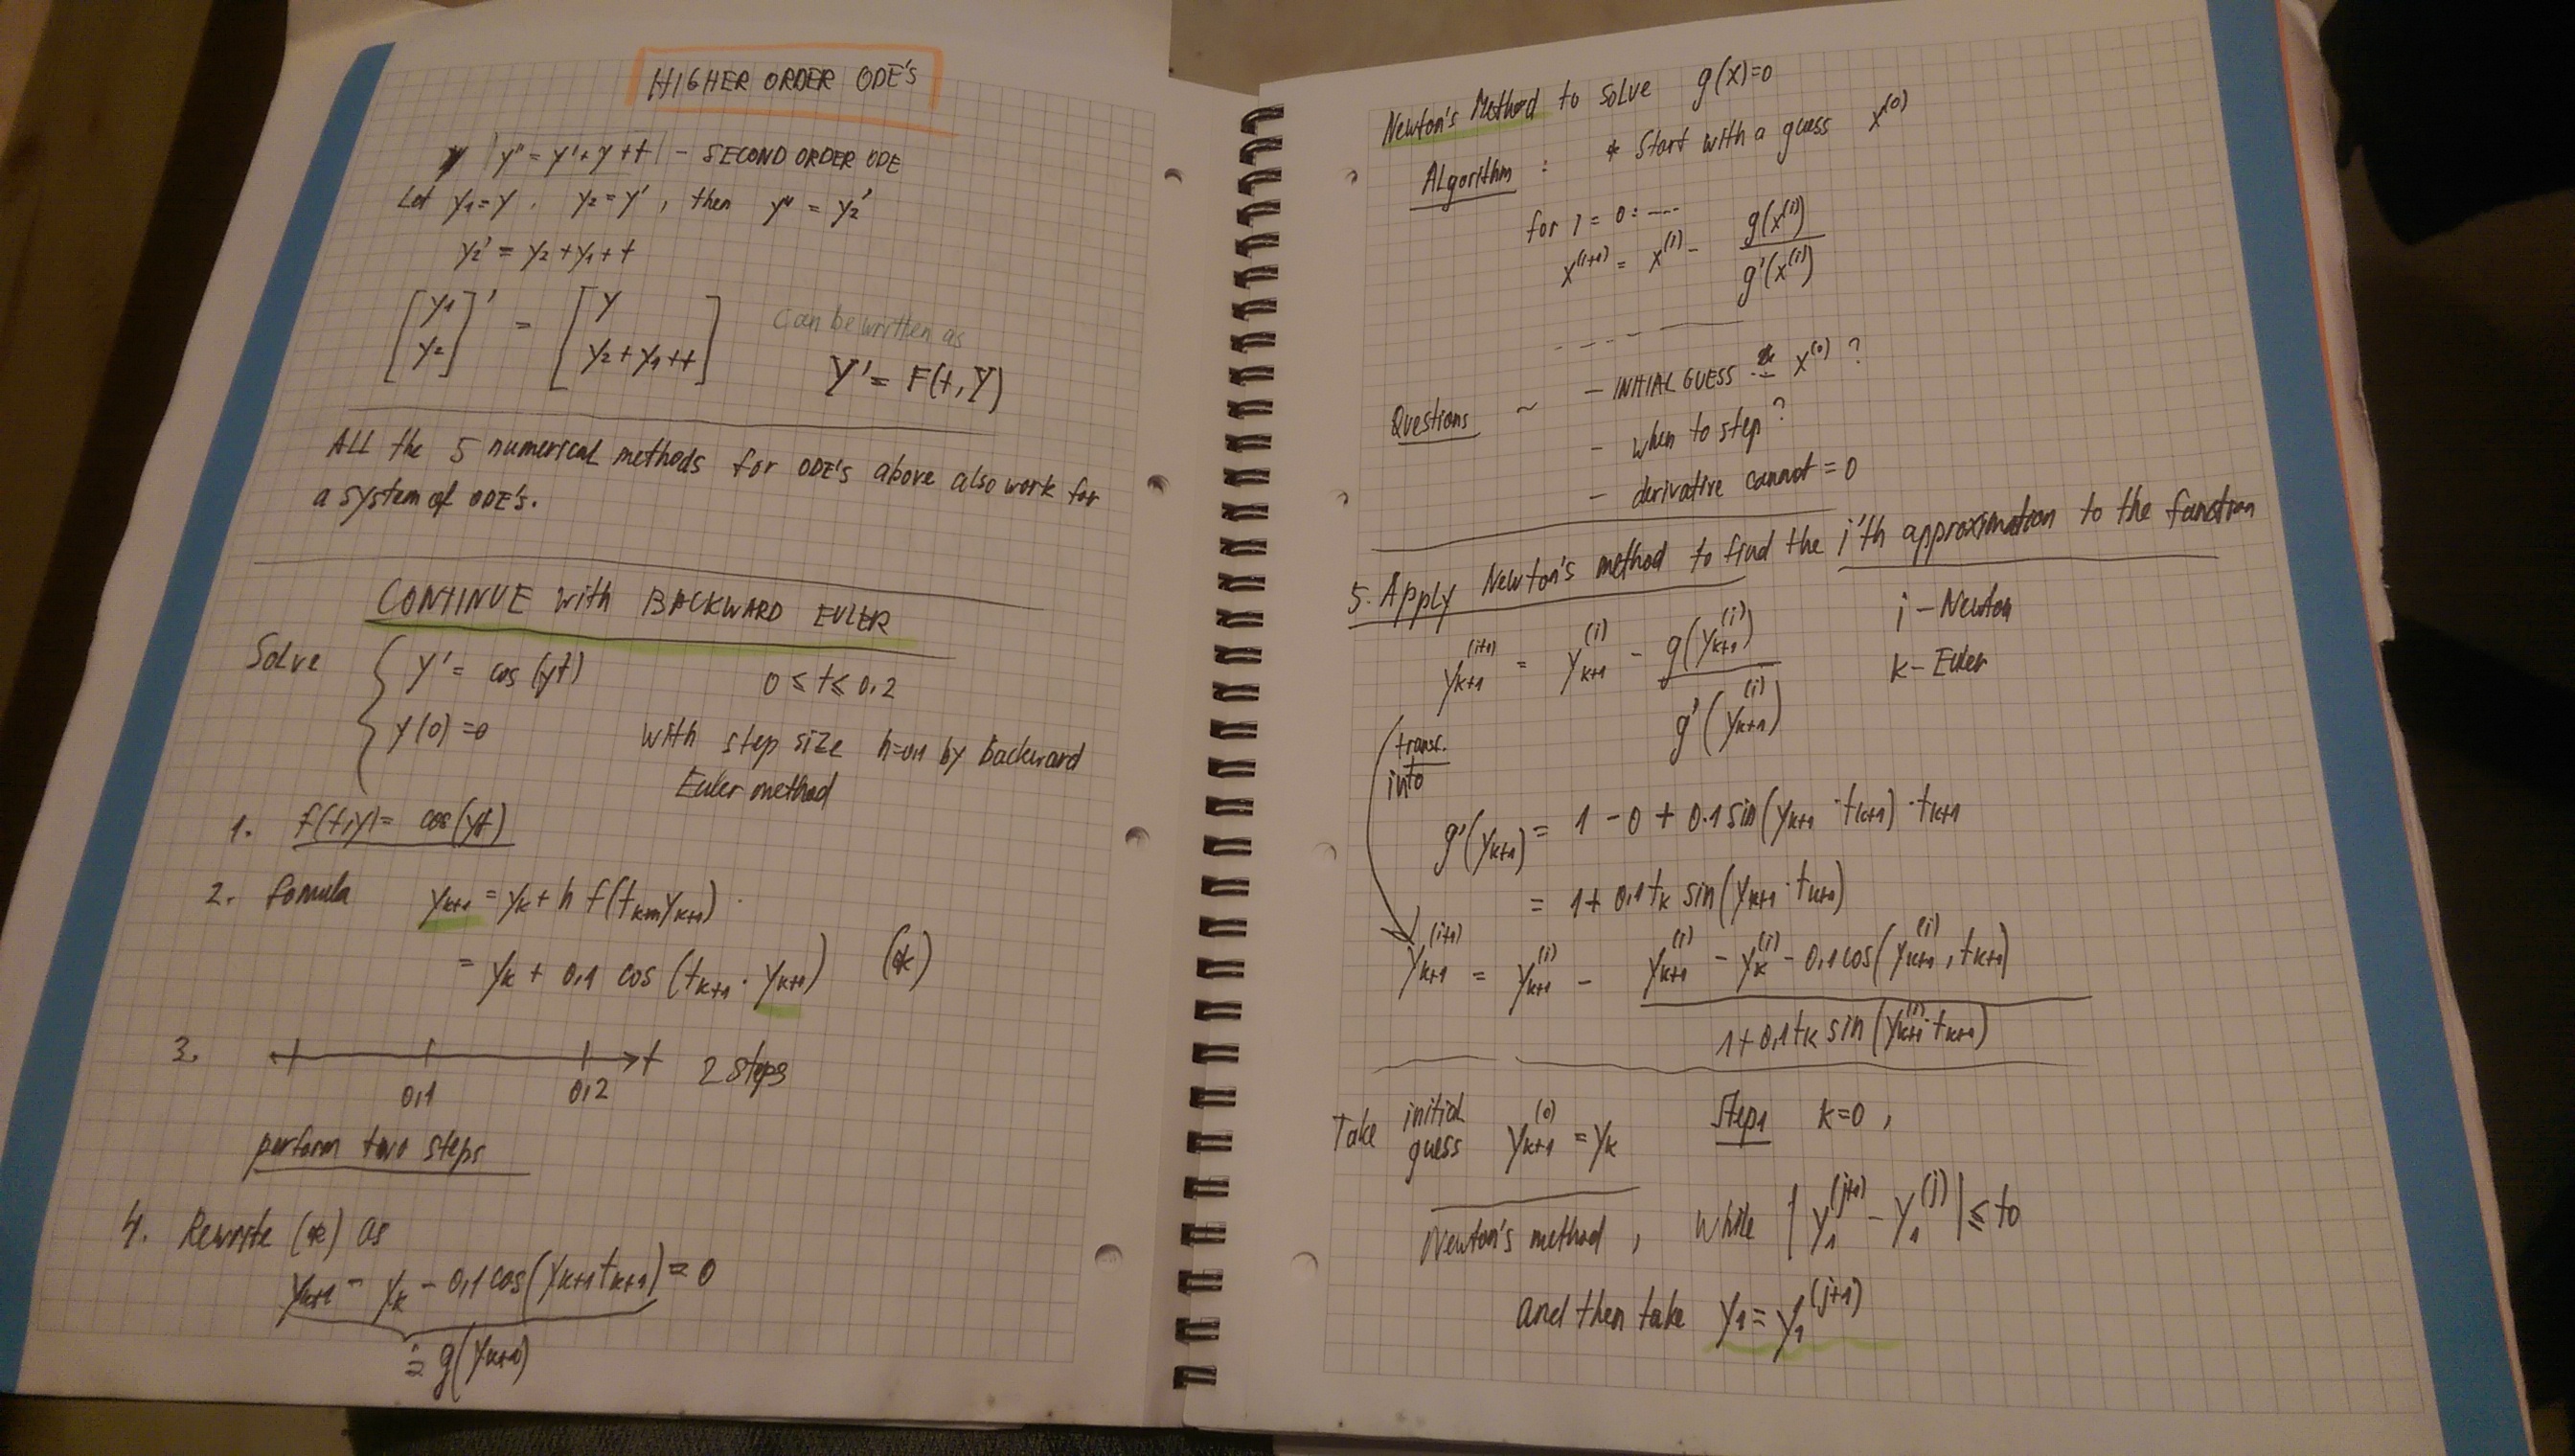 HIGHER ORDER ODE'S
y'' = y' + y + t - SECOND ORDER ODE
Let y₁ = y . y₂ = y' , then y'' = y₂'
y₂' = y₂ + y₁ + t
[y₁ y₂]' = [y y₂ + y₁ + t] can be written as
Y' = F(t, Y)
ALL the 5 numerical methods for ODE's above also work for
a system of ODE's.
CONTINUE with BACKWARD EULER
Solve { y' = cos(yt) 0 ≤ t ≤ 0,2
y(0) = 0 with step size h=0,1 by backward
Euler method
1. f(t,y) = cos(yt)
2. fomula yₖ₊₁ = yₖ + h f(tₖ₊₁, yₖ₊₁)
= yₖ + 0,1 cos(tₖ₊₁ · yₖ₊₁) (*)
3. t 2 steps
0,1 0,2
perform two steps
4. Rewrite (*) as
yₖ₊₁ - yₖ - 0,1 cos(yₖ₊₁ tₖ₊₁) = 0
= g(yₖ₊₁)
Newton's Method to solve g(x)=0
Algorithm : * Start with a guess x⁽⁰⁾
for i = 0: ----
x⁽ⁱ⁺¹⁾ = x⁽ⁱ⁾ - g(x⁽ⁱ⁾) / g'(x⁽ⁱ⁾)
Questions ~ - INITIAL GUESS x⁽⁰⁾ ?
- when to step ?
- derivative cannot = 0
5. Apply Newton's method to find the i'th approximation to the function
yₖ₊₁⁽ⁱ⁺¹⁾ = yₖ₊₁⁽ⁱ⁾ - g(yₖ₊₁⁽ⁱ⁾) / g'(yₖ₊₁⁽ⁱ⁾) i - Newton
k - Euler
transf. into
g'(yₖ₊₁) = 1 - 0 + 0.1 sin(yₖ₊₁ · tₖ₊₁) · tₖ₊₁
= 1 + 0,1 tₖ sin(yₖ₊₁ · tₖ₊₁)
yₖ₊₁⁽ⁱ⁺¹⁾ = yₖ₊₁⁽ⁱ⁾ - yₖ₊₁⁽ⁱ⁾ - yₖ⁽ⁱ⁾ - 0,1 cos(yₖ₊₁⁽ⁱ⁾, tₖ₊₁) / 1 + 0,1 tₖ sin(yₖ₊₁⁽ⁱ⁾ · tₖ₊₁)
Take initial guess yₖ₊₁⁽⁰⁾ = yₖ Step1 k=0 ,
Newton's method , while |y₁⁽ʲ⁺¹⁾ - y₁⁽ʲ⁾| ≤ to
and then take y₁ = y₁⁽ʲ⁺¹⁾